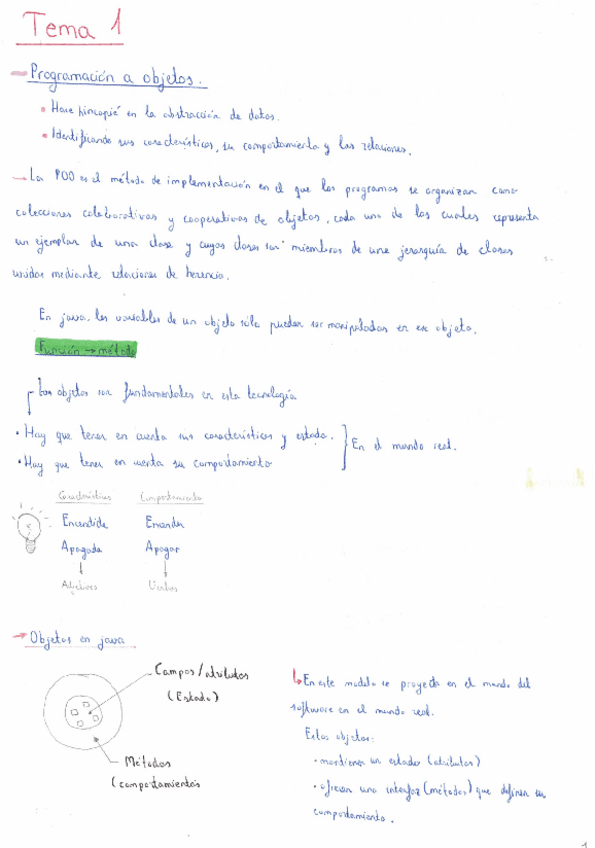 Tema 1
Programación a objetos.
• Hace hincapié en la abstracción de datos.
• Identificando sus características, su comportamiento y las relaciones.
→ La POO es el método de implementación en el que los programas se organizan como
colecciones colaborativas y cooperativas de objetos, cada uno de los cuales representa
un ejemplar de una clase y cuyas clases son miembros de una jerarquía de clases
unidas mediante relaciones de herencia.
En java, las variables de un objeto sólo pueden ser manipuladas en ese objeto.
Función → método
Los objetos son fundamentales en esta tecnología
• Hay que tener en cuenta sus características y estado.
• Hay que tener en cuenta su comportamiento
En el mundo real.
Características Comportamiento
Encendida Encender
Apagada Apagar
Adjetivos Verbos
→ Objetos en java
Campos/atributos
(Estado)
Métodos
(comportamientos
En este modelo se proyecta en el mundo del
software en el mundo real.
Estos objetos:
• mantienen un estado (atributos)
• ofrecen una interfaz (métodos) que definen su
comportamiento.
1